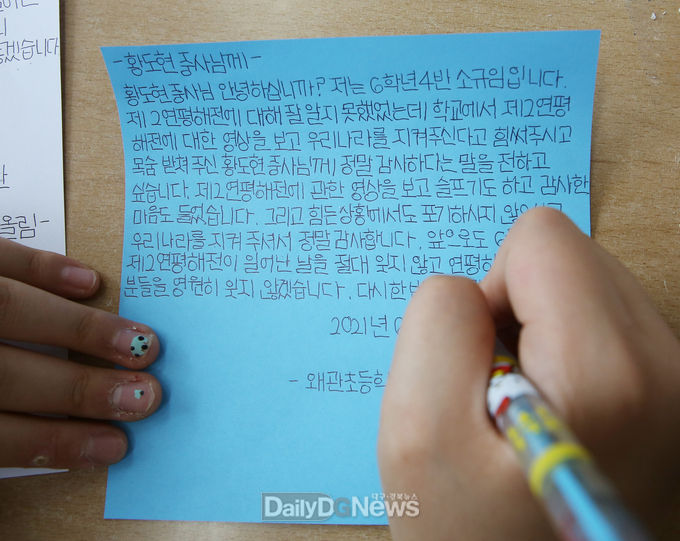 겠습니다
올림-
-황도현 중사님께-
황도현 중사님 안녕하십니까? 저는 6학년 4반 소규임 입니다.
제 2연평해전에 대해 잘 알지 못했었는데 학교에서 제2연평
해전에 대한 영상을 보고 우리나라를 지켜주신다고 힘써주시고
목숨 받쳐 주신 황도현 중사님께 정말 감사하다는 말을 전하고
싶습니다. 제2연평해전에 관한 영상을 보고 슬프기도 하고 감사한
마음도 들었습니다. 그리고 힘든 상황에서도 포기하시지
우리나라를 지켜 주셔서 정말 감사합니다. 앞으로도 6
제2연평해전이 일어난 날을 절대 잊지 않고 연평해
분들을 영원히 잊지 않겠습니다. 다시 한번
2021년
-왜관초등학
대구·경북뉴스
DailyDGNews